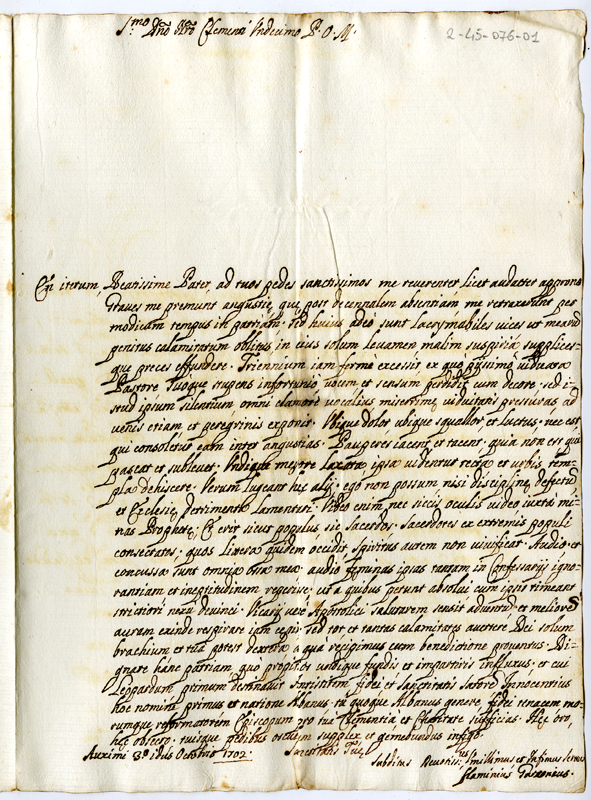 S.mo Dño Nrō Clementi Undecimo P. O. M.
2-45-076-01
En iterum, Beatissime Pater, ad tuos pedes sanctissimos me reverenter licet audacter approno
Graves me premunt angustie, que post decennalem absentiam me retraxerunt per
modicum tempus in patriam. Sed huius adeò sunt lacrymabiles vices ut mearū
penitus calamitatum oblitus in eius solum levamen malim suspiria supplices=
que preces effundere. Triennium iam fermè excessit, ex quo pijssimo viduata
Pastore suoque stupens infortunio vocem et sensum perdidit cum decore. sed i=
stud ipsum silentium, omni clamore vocalius miserrime viduitatis pressuras ad
venis etiam et peregrinis exponit. Ubique dolor ubique squallor, et luctus. nec est
qui consoletur eam inter angustias. Pauperes iacent, et tacent. quia non est qui
pascat et sublevet. Undique laxata ipsa videntur tecta et urbis tem=
pla dehiscere. Verum lugeant hec alij. ego non possum nisi discipline defectū
et Ecclesie detrimenta lamentari. Video enim nec siccis oculis video iuxta mi=
nas Prophete, Et erit sicut populus sic sacerdos. Sacerdotes ex extremis populi
consecratos; quos litera quidem occidit, spiritus autem non vivificat. Audio. et
concussa sunt omnia ossa mea. audio feminas ipsas tantam in Confessarijs igno=
rantiam et ineptitudinem reperisse, ut a quibus petunt absolvi cum ipsis timeant
strictiori nexu devinci. Vicarij vere Apostolici salutarem sensit adventū. et meliorē
auram exinde respirare iam cepit. sed tot, et tantas calamitates avertere Dei solum
brachium et tua potest dextera a qua recipimus cum benedictione
gnare hanc patriam, quo propitios ubique fundis et impartiris influxus. et cui
Leopardum primum Antistitem fidei et sanctitatis satorē Innocentius
hoc nomine primus et natione Albanus. tu quoque Albanus genere fidei tenacem mo=
rumque reformatorem Episcopum pro tua Clementia et Charitate sufficias. Hec oro,
hec obsecro. tuisque pedibus osculum supplex et gemebundus infigo.
Auximi 3° idus Octobris 1702.
Sanctitatis Tue
Subditus Devotiss.us Humillimus et Infimus Servus
Flaminius